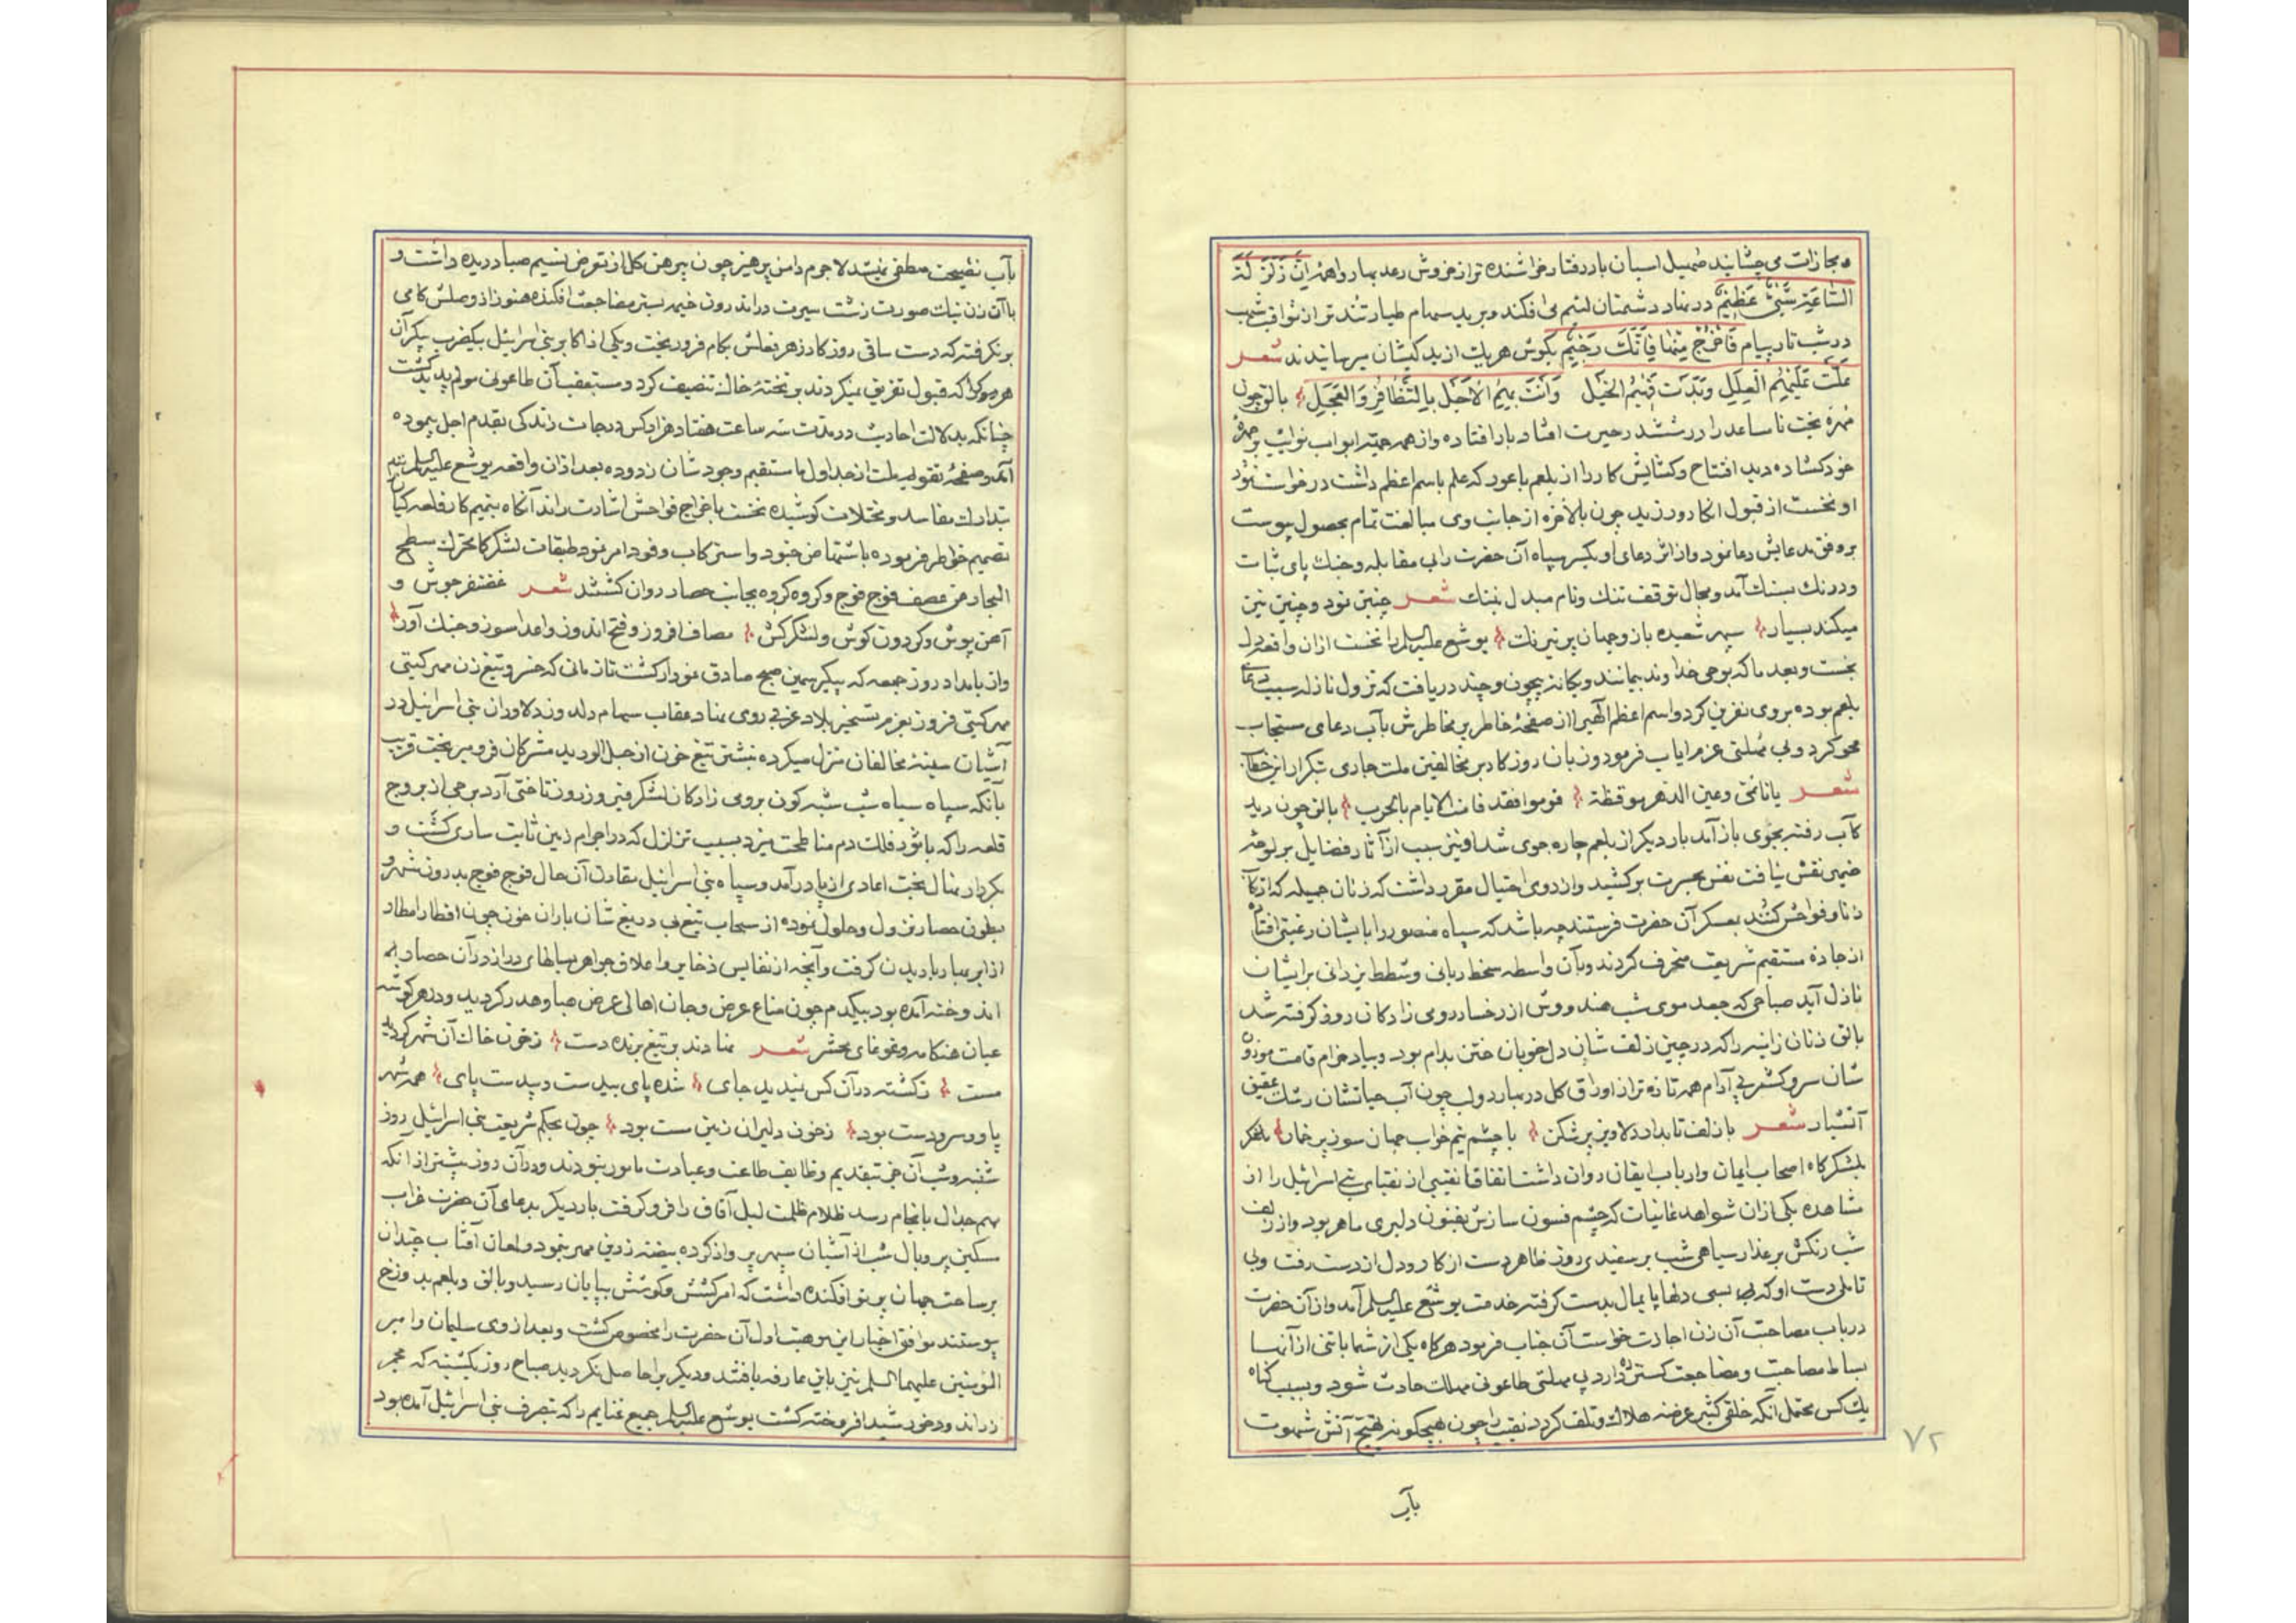 و مجازات می چشانید صهیل اسبان باد رفتار خراشنده تر از خروش رعد بهار واهمهٔ اِنَّ زَلْزَلَةَ
السَّاعَةِ شَیْءٌ عَظِیْمٌ در نهاد دشمنان لئیم می افکند و برید سهام طیار تندتر از ثواقب شهب
در شب تار پیام فَاخْرُجْ مِنْهَا فَاِنَّكَ رَجِیْمٌ بکوش هر یك از بد کیشان میرسانیدند شعر
عَلَّت عَلَیْهِمُ الْعِلَلِ وَبَدَت فِیْهِمُ الخَیْل وَاَنْتَ بِهِمُ الْاَجَل بِالتَّظَافِرُ وَ العَجَلِ بالق چون
مهرهٔ بخت ناساعد را در ششدر حیرت افتاد بار افتاده و از همه جهة ابواب نوایب بر چهرهٔ
خود کشاده دید افتتاح و کشایش کار را از بلعم باعور که علم باسم اعظم داشت درخواست نمود
او نخست از قبول انکار ورزید چون بالاخره از جانب وی مبالغت تمام بحصول پیوست
بر وفق مدعایش دعا نمود و از اثر دعای او یکسر سپاه آن حضرت را بی مقابله و جنك پای ثبات
و درنك بسنك آمد و مجال توقف تنك و نام مبدل بننك شعر چنین نمود و چنین نیز
میکند بسیار سپهر شعبده باز و جهان پر نیرنك یوشع علیه السلم را نخست ازان واقعه دل
بخست و بعد ما که بوحی خداوند بیمانند و یکانهٔ بیچون و چند دریافت که نزول نازله سبب دعای
بلعم بوده بروی نفرین کرد و اسم اعظم الهی را از صفحهٔ خاطر پر مخاطرش بآب دعای مستجاب
محو کرد و بی مهلتی عزم ایاب فرمود و زبان روزکار بر مخالفین ملت جاری بتکرار این خطاب
شعر یا نائمی وعین الدهر موقظة قوموا فقد فات الایام بالحرب بالق چون دید
کآب رفته بجوی باز آمد بار دیکر از بلعم چاره جوی شد او نیز سبب از آثار فضایل بر لوحهٔ
ضمیر نقش نیافت نفس بحسرت برکشید و از روی احتیال مقرر داشت که زنان جمیله که ارتکاب
زنا و فواحش کنند بعسکر آن حضرت فرستند چه باشد که سپاه منصور را با یشان رغبتی افتاده
از جادهٔ مستقیم شریعت منحرف کردند و بآن واسطه سخط ربانی و شطط یزدانی بر ایشان
نازل آید صباحی که جعد موی شب هندووش از رخسار رومی زادکان روز کرفته شد
بالق زنان زانیه را که در چین زلف شان دل خوبان ختن بدام بود و بیاد خرام قامت موزون
شان سرو کشمر بی آرام همه تازه تر از اوراق کل در بهار و لب چون آب حیاتشان رشك عقیق
آتشبار شعر با زلف تابدار دلاویز پر شکن با چشم نیم خواب جهان سوز پر خمار
بلشکرکاه اصحاب ایمان و ارباب ایقان روان داشت اتفاقا نقیبی از نقبای بنی اسرائیل را از
مشاهده یکی ازان شواهد غانیات که چشم فسون سازش بفنون دلبری ماهر بود و از زلف
شب رنکش بر عذار سیاهی شب بر سفیدی روز ظاهر دست از کار و دل از دست رفت و بی
تاملی دست او که بی بسی دلها پایمال بدست کرفته خدمت یوشع علیه السلم آمد و از آن حضرت
در باب مصاحبت آن زن اجازت خواست آن جناب فرمود هرکاه یکی از شما با تنی از آنها
بساط مصاحبت و مضاجعت کسترده دارد بی مهلتی طاعونی مهلك حادث شود و بسبب کناه
یك کس محتمل آنکه خلقی کثیر عرضهٔ هلاك و تلف کردد نقیب را چون هیچکونه تهیج آتش شهوت
بآب
۷۲
بآب نصیحت منطفی نشد لاجرم دامن پرهیز چون پیرهن کل از تعرض نسیم صبا دریده داشت و
با آن زن نبات صورت زشت سیرت در اندرون خیمه بستر مضاجعت افکنده هنوز از وصلش کامی
بر نکرفته که دست ساقی روزکار زهر بقاش بکام فرو ریخت و یکی از اکابر بنی اسرائیل بیکضرب پیکر آن
هر دو را که قبول تفریق نمیکردند بر تختهٔ خاك تنصیف کرد و مستعقب آن طاعونی مولم پدید کشت
چنانکه بدلالت احادیث در مدت سه ساعت هفتاد هزار کس درجات زندکی بقدم اجل پیموده
آمد و صفحهٔ تقویم ملت از جداول ما ستقیم وجود شان زدوده بعد ازان واقعه یوشع علیه السلم
بتدارك مفاسد و مختلات کوشیده نخست باخراج فواحش اشارت راند آنکاه بتمیم کار قلعه کیان
تصمیم خاطر فرموده باشتماض جنود و استرکاب وفود امر نمود طبقات لشکر کامحترك بسطح
البحار من عصف فوج فوج و کروه کروه بجانب حصار روان کشتند شعر غضنفر جوش و
آهن پوش و کردون کوش و لشکر کش مصاف افروز و فتح اندوز و اعدا سوز و جنك آور
و از بامداد روز جمعه که پیکر سیمین صبح صادق نمودار کشت تا زمانی که خسرو تیغ زن مهر کیتی
مهر کیتی فروز بعزم تسخیر بلاد غربی روی نهاد عقاب سهام دلدوز دلاوران بنی اسرائیل در
آشیان سینهٔ مخالفان منزل میکرد و بنشتر تیغ خون از حبل الورید مشرکان فرو میریخت قریب
بآنکه سپاه سیاه شب شبه کون بروی زادکان لشکر فیروز روز تاختی آرد برجی از بروج
قلعه را که با ثور فلك دم مناطحت میزد بسبب تزلزل که در اجرام زمین ثابت ساری کشت و
بکردار نهال بخت اعادی از پا در آمد و سپاه بنی اسرائیل مقارن آن حال فوج فوج بدرون شهر و
بطون حصار نزول و حلول نموده از سحاب تیغ بی دریغ شان باران خون چون اقطار امطار
از ابر بهار باریدن کرفت و آنچه از نفایس ذخایر و اعلاق جواهر بسالهای دراز در آن حصار به
اندوخته آمده بود بیکدم چون متاع عرض و جان اهالی عرض هبا و هدر کردید و در هر کوشه
عیان هنکامه و غوغای محشر شعر نهادند بر تیغ برنده دست ز خون خاك آن شهر کردید
مست ز کشته در آن کس ندید جای شده پای بیدست و بیدست پای همه شهر
پا و سر و دست بود ز خون دلیران زمین مست بود چون بحکم شریعت بنی اسرائیل روز
شنبه و شب آن جز بتقدیم وظایف طاعت و عبادت مامور نبودند و در آن روز پیشتر از انکه
مهم جدال بانجام رسد ظلام ظلمت لیل آفاق را فرو کرفت بار دیکر بدعای آن حضرت غراب
مسکین پر و بال شب از آشیان سپهر پرواز کرده بیضهٔ زرین مهر بنمود و لمعان آفتاب چندان
بر ساحت جهان پرتو افکنده داشت که امر کشش و کوشش بپایان رسید و بالق و بلعم بدوزخ
پیوستند موافق اخبار این موهبت اول آن حضرت را مخصوص کشت و بعد از وی سلیمان و امیر
المؤمنین علیهما السلم نیز باین عارفه یافتند و دیکر برا حاصل نکردید صباح روز یکشنبه که مجمر
زر اندود خورشید افروخته کشت یوشع علیه السلم جمیع غنایم را که بتصرف بنی اسرائیل آمده بود